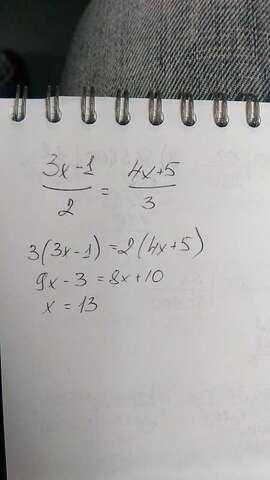 3x-1 / 2 = 4x+5 / 3
3(3x-1)=2(4x+5)
9x-3=8x+10
x=13